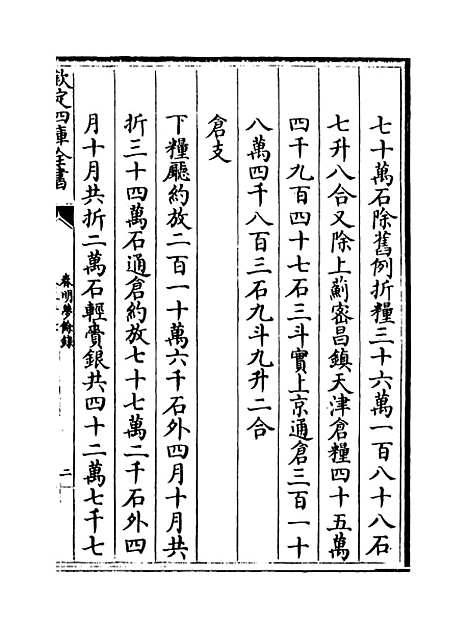 七十萬石除舊例折糧三十六萬一百八十八石
七升八合又除上薊密昌鎮天津倉糧四十五萬
四千九百四十七石三斗實上京通倉三百一十
八萬四千八百三石九斗九升二合
倉支
下糧廳約放二百一十萬六千石外四月十月共
折三十四萬石通倉約放七十七萬二千石外四
月十月共折二萬石輕賫銀共四十二萬七千七
欽定四庫全書
春明夢餘錄
二